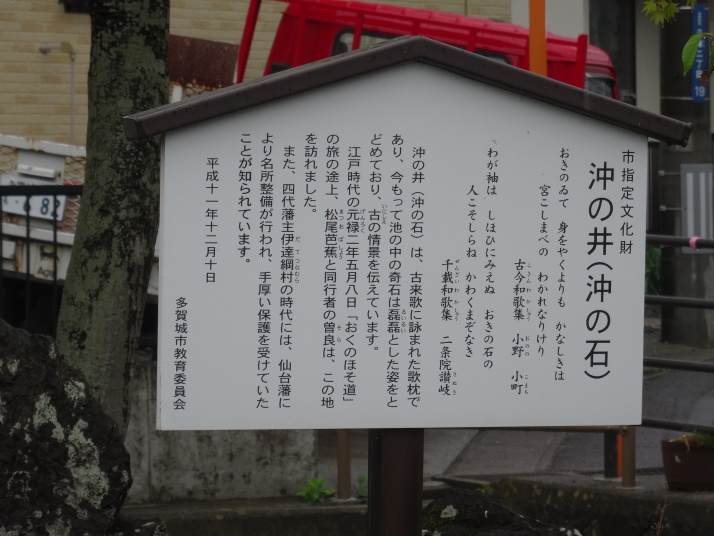 市指定文化財
沖の井(沖の石)
おきのゐて 身をやくよりも かなしきは
宮こしまべの わかれなりけり
古今和歌集 小野 小町
わが袖は しほひにみえぬ おきの石の
人こそしらね かわくまぞなき
千載和歌集 二条院讃岐
沖の井(沖の石)は、古来歌に詠まれた歌枕で
あり、今もって池の中の奇石は磊磊とした姿をと
どめており、古の情景を伝えています。
江戸時代の元禄二年五月八日「おくのほそ道」
の旅の途上、松尾芭蕉と同行者の曽良は、この地
を訪れました。
また、四代藩主伊達綱村の時代には、仙台藩に
より名所整備が行われ、手厚い保護を受けていた
ことが知られています。
平成十一年十二月十日
多賀城市教育委員会
19